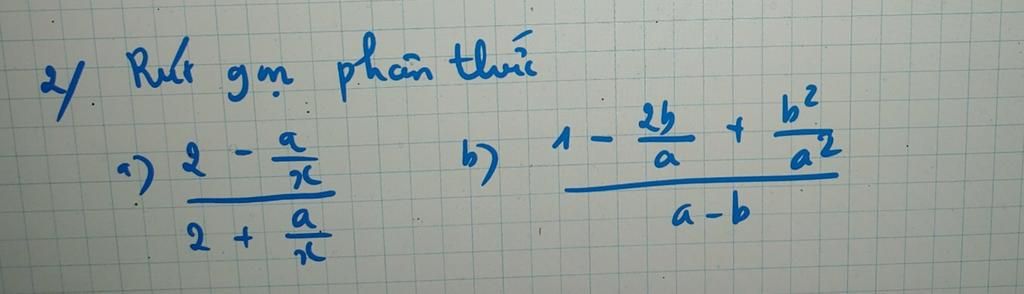 2/ Rút gọn phân thức
a) (2 - a/x) / (2 + a/x) b) (1 - 2b/a + b²/a²) / (a - b)